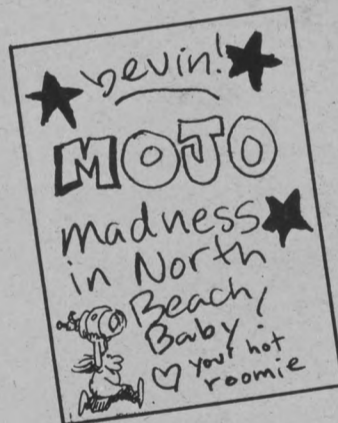 Devin!
MOJO
madness
in North
Beach,
Baby!
♡ your hot
roomie